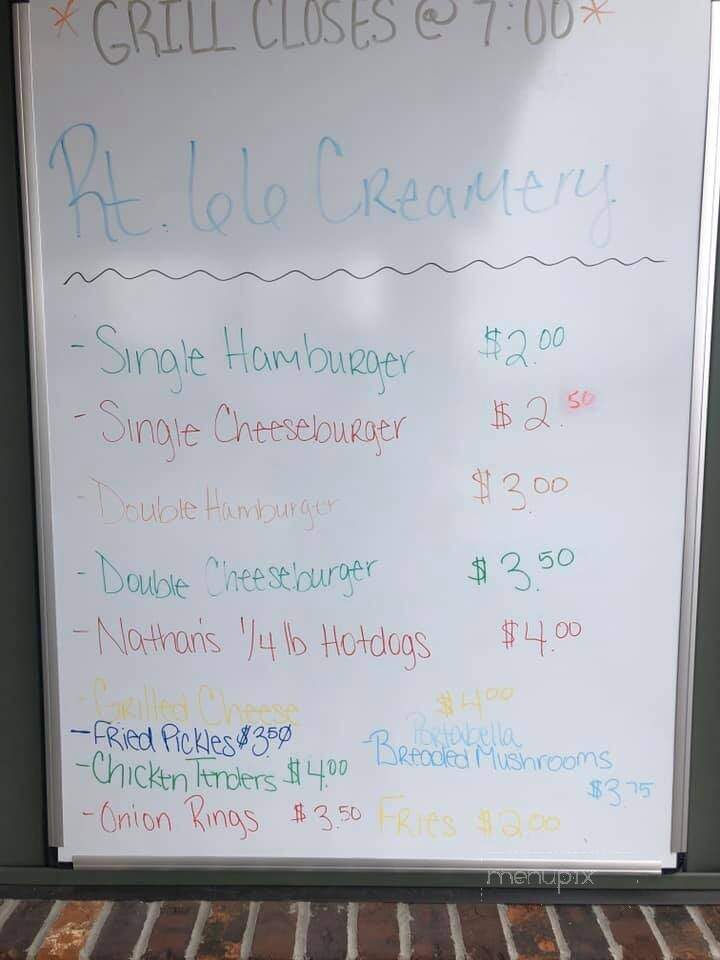 * GRILL CLOSES @ 7:00 *
Rt. 66 Creamery
- Single Hamburger $2.00
- Single Cheeseburger $2.50
- Double Hamburger $3.00
- Double Cheeseburger $3.50
- Nathan's 1/4 lb Hotdogs $4.00
- Grilled Cheese $4.00
- Fried Pickles $3.50
- Portabella
Breaded Mushrooms
$3.75
- Chicken Tenders $4.00
- Onion Rings $3.50 Fries $2.00
menupix